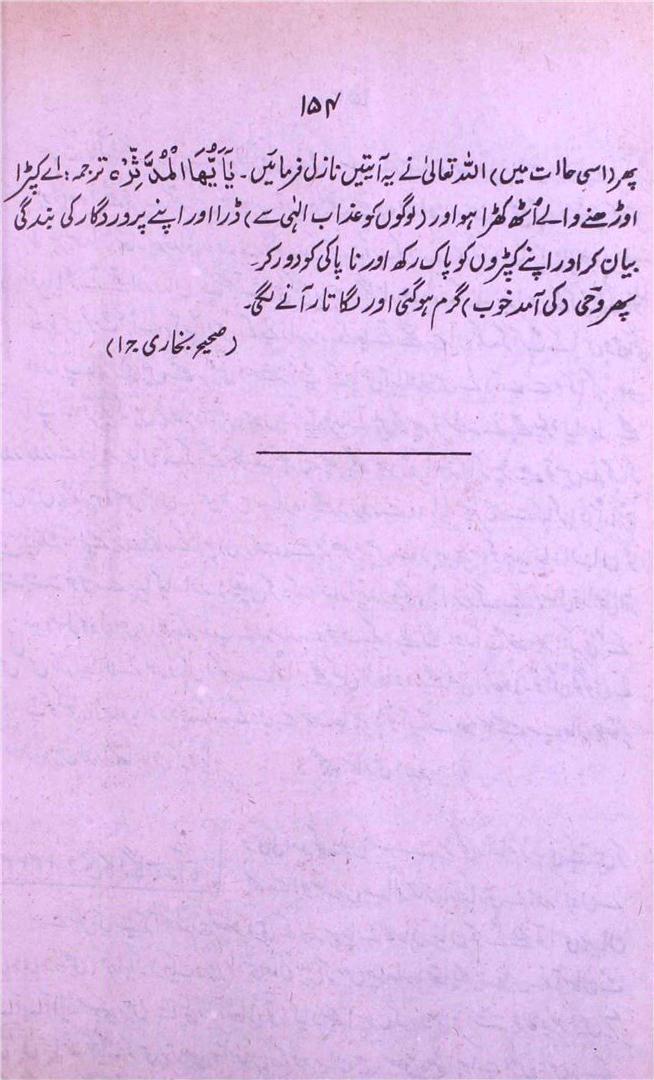 ۱۵۴
پھر (اسی حالت میں) اللہ تعالیٰ نے یہ آیتیں نازل فرمائیں۔ یٰٓاَیُّھَا الْمُدَّثِّرُ ہ ترجمہ: اے کپڑا
اوڑھنے والے اُٹھ کھڑا ہو اور (لوگوں کو عذاب الٰہی سے) ڈرا اور اپنے پروردگار کی بندگی
بیان کر اور اپنے کپڑوں کو پاک رکھ اور ناپاکی کو دور کر۔
پھر وحی (کی آمد خوب) گرم ہوگئی اور لگاتار آنے لگی۔
(صحیح بخاری ج۱)